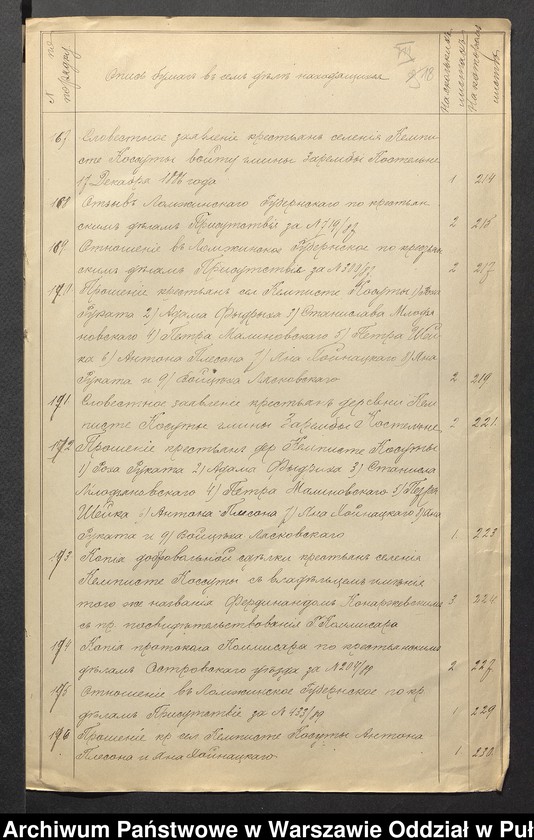 № по порядку
Опись бумагъ въ семъ дѣлѣ находящихся
На сколькихъ листахъ
На которомъ листѣ
VIII
167 Словестное заявленіе крестьянъ селенія Кемпи-
сте Косуты войту гмины Зарембы Костельне
17 Декабря 1886 года 1 214
168 Отзывъ Ломжинскаго Губернскаго по крестьян-
скимъ дѣламъ Присутствія за № 719/87 2 215
169 Отношеніе въ Ломжинское Губернское по крестьян-
скимъ дѣламъ Присутствіе за № 288/87 2 217
170 Прошеніе крестьянъ сел Кемписте Косуты 1) Роха
Руката 2) Адама Фыдрыха 3) Станислава Млодя-
новскаго 4) Петра Малиновскаго 5) Петра Шей-
ка 6) Антона Плесона 7) Яна Хойнацкаго 8) Яна
Руката и 9) Войцѣха Ласковскаго 2 219
171 Словестное заявленіе крестьянъ деревни Кем-
писте Косуты гмины Зарембы Костельне 2 221
172 Прошеніе крестьянъ дер Кемписте Косуты
1) Роха Руката 2) Адама Фыдриха 3) Станисла
Млодяновскаго 4) Петра Малиновскаго 5) Петра
Шейка 6) Антона Плесона 7) Яна Хойнацкаго 8) Яна
Руката и 9) Войцѣха Ласковскаго 1 223
173 Копія добровальной сдѣлки крестьянъ селенія
Кемписте Коссуты съ владѣльцомъ имѣнія
того же названія Фердинандомъ Конаржевскимъ 3 224
съ пр. посвидѣтельствованія Г Коммисара
174 Копія протокола Коммисара по крестьянскимъ
дѣламъ Островскаго уѣзда за № 204/89 2 227
175 Отношеніе въ Ломжинское Губернское по кр
дѣламъ Присутствіе за № 433/89 1 229
176 Прошеніе кр сел Кемписте Косуты Антона
Плесона и Яна Хойнацкаго 1 230
Archiwum Państwowe w Warszawie Oddział w Puł